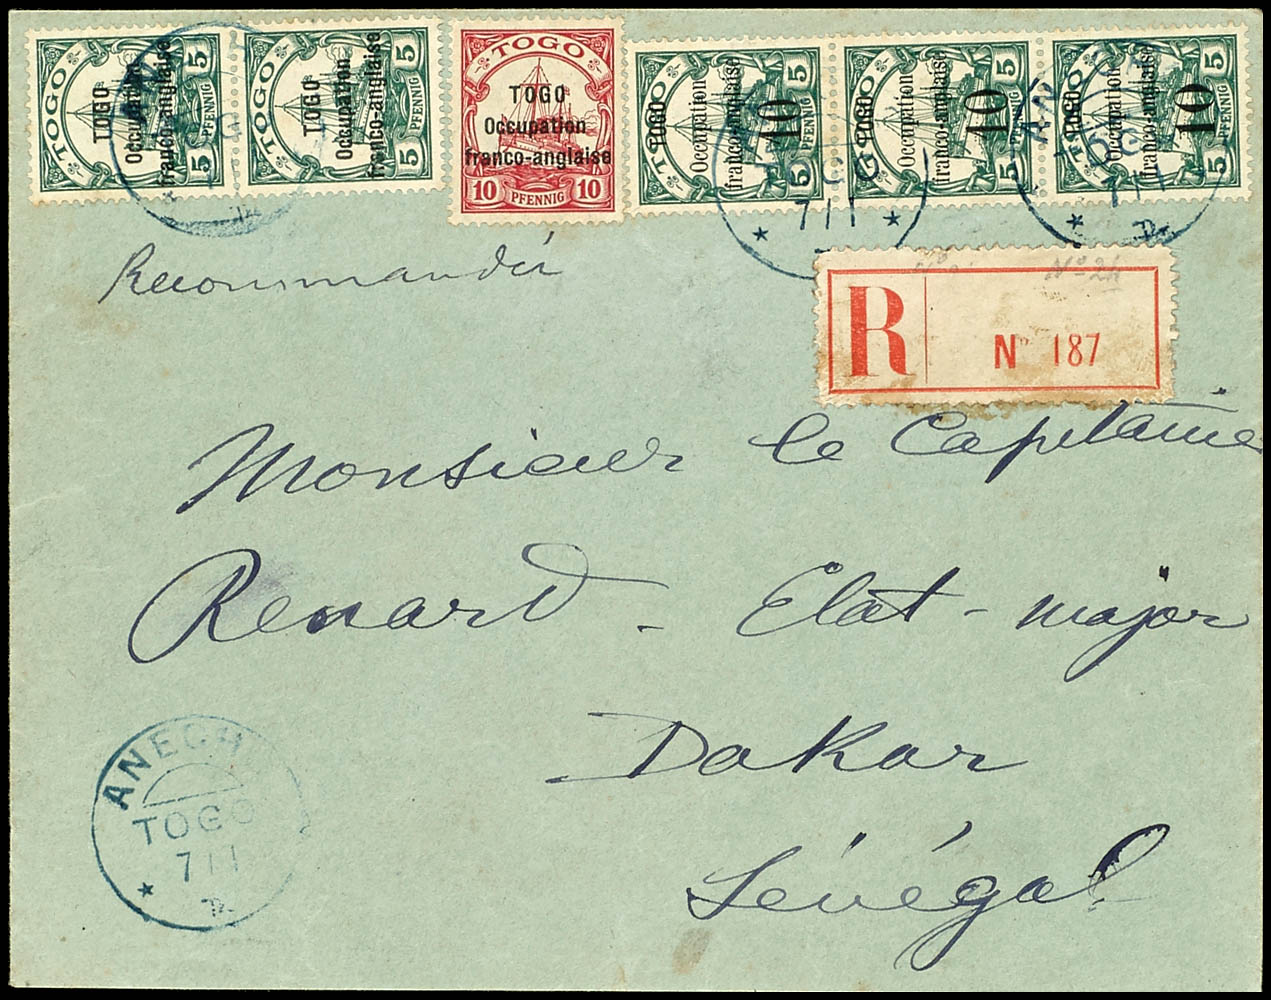 TOGO
5 PFENNIG 5
TOGO
Occupation
franco-anglaise
TOGO
5 PFENNIG 5
TOGO
Occupation
franco-anglaise
TOGO
TOGO
Occupation
franco-anglaise
10 PFENNIG 10
TOGO
5 PFENNIG 5
TOGO
Occupation
franco-anglaise
10
TOGO
5 PFENNIG 5
TOGO
Occupation
franco-anglaise
10
TOGO
5 PFENNIG 5
TOGO
Occupation
franco-anglaise
10
7 1 1
7 1 1
Recommandée
N° 24
R N° 187
Monsieur le Capitaine
Renard - Etat-major
Dakar
Sénégal
ANECHO
TOGO
7 1 1